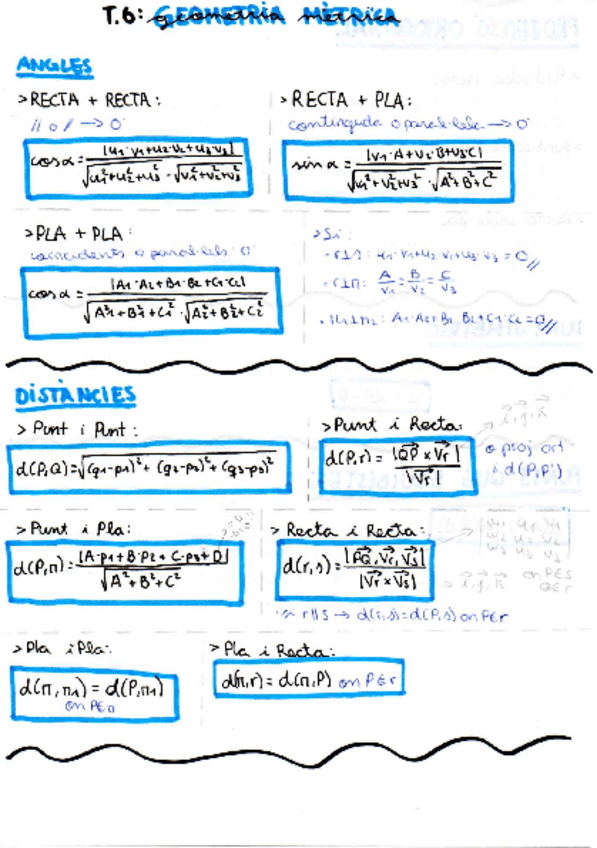 T.6: GEOMETRIA MÈTRICA
ANGLES
> RECTA + RECTA:
// o / → 0
cos α = |u1·v1+u2·v2+u3·v3| / √(u1²+u2²+u3²) · √(v1²+v2²+v3²)
> RECTA + PLA:
continguda o paral·lela → 0
sin α = |v1·A+v2·B+v3·C| / √(v1²+v2²+v3²) · √(A²+B²+C²)
> PLA + PLA:
coincidents o paral·lels: 0
cos α = |A1·A2+B1·B2+C1·C2| / √(A1²+B1²+C1²) · √(A2²+B2²+C2²)
> Si:
· r⊥s: u1·v1+u2·v2+u3·v3=0//
· r⊥π: A/v1 = B/v2 = C/v3
· π1⊥π2: A1·A2+B1·B2+C1·C2=0//
DISTÀNCIES
> Punt i Punt:
d(P,Q)=√(q1-p1)²+(q2-p2)²+(q3-p3)²
> Punt i Recta:
i, j, k
d(P,r) = |QP × Vr| / |Vr|
o proj ort
i d(P,P')
> Punt i Pla:
d(P,π) = |A·p1+B·p2+C·p3+D| / √A²+B²+C²
> Recta i Recta:
d(r,s) = |PQ, Vr, Vs| / |Vr × Vs|
→ i, j, k
on P∈S
Q∈r
· si r//s → d(r,s)=d(P,s) on P∈r
> Pla i Pla:
d(π,π1) = d(P,π1)
on P∈π
> Pla i Recta:
d(π,r) = d(π,P) on P∈r